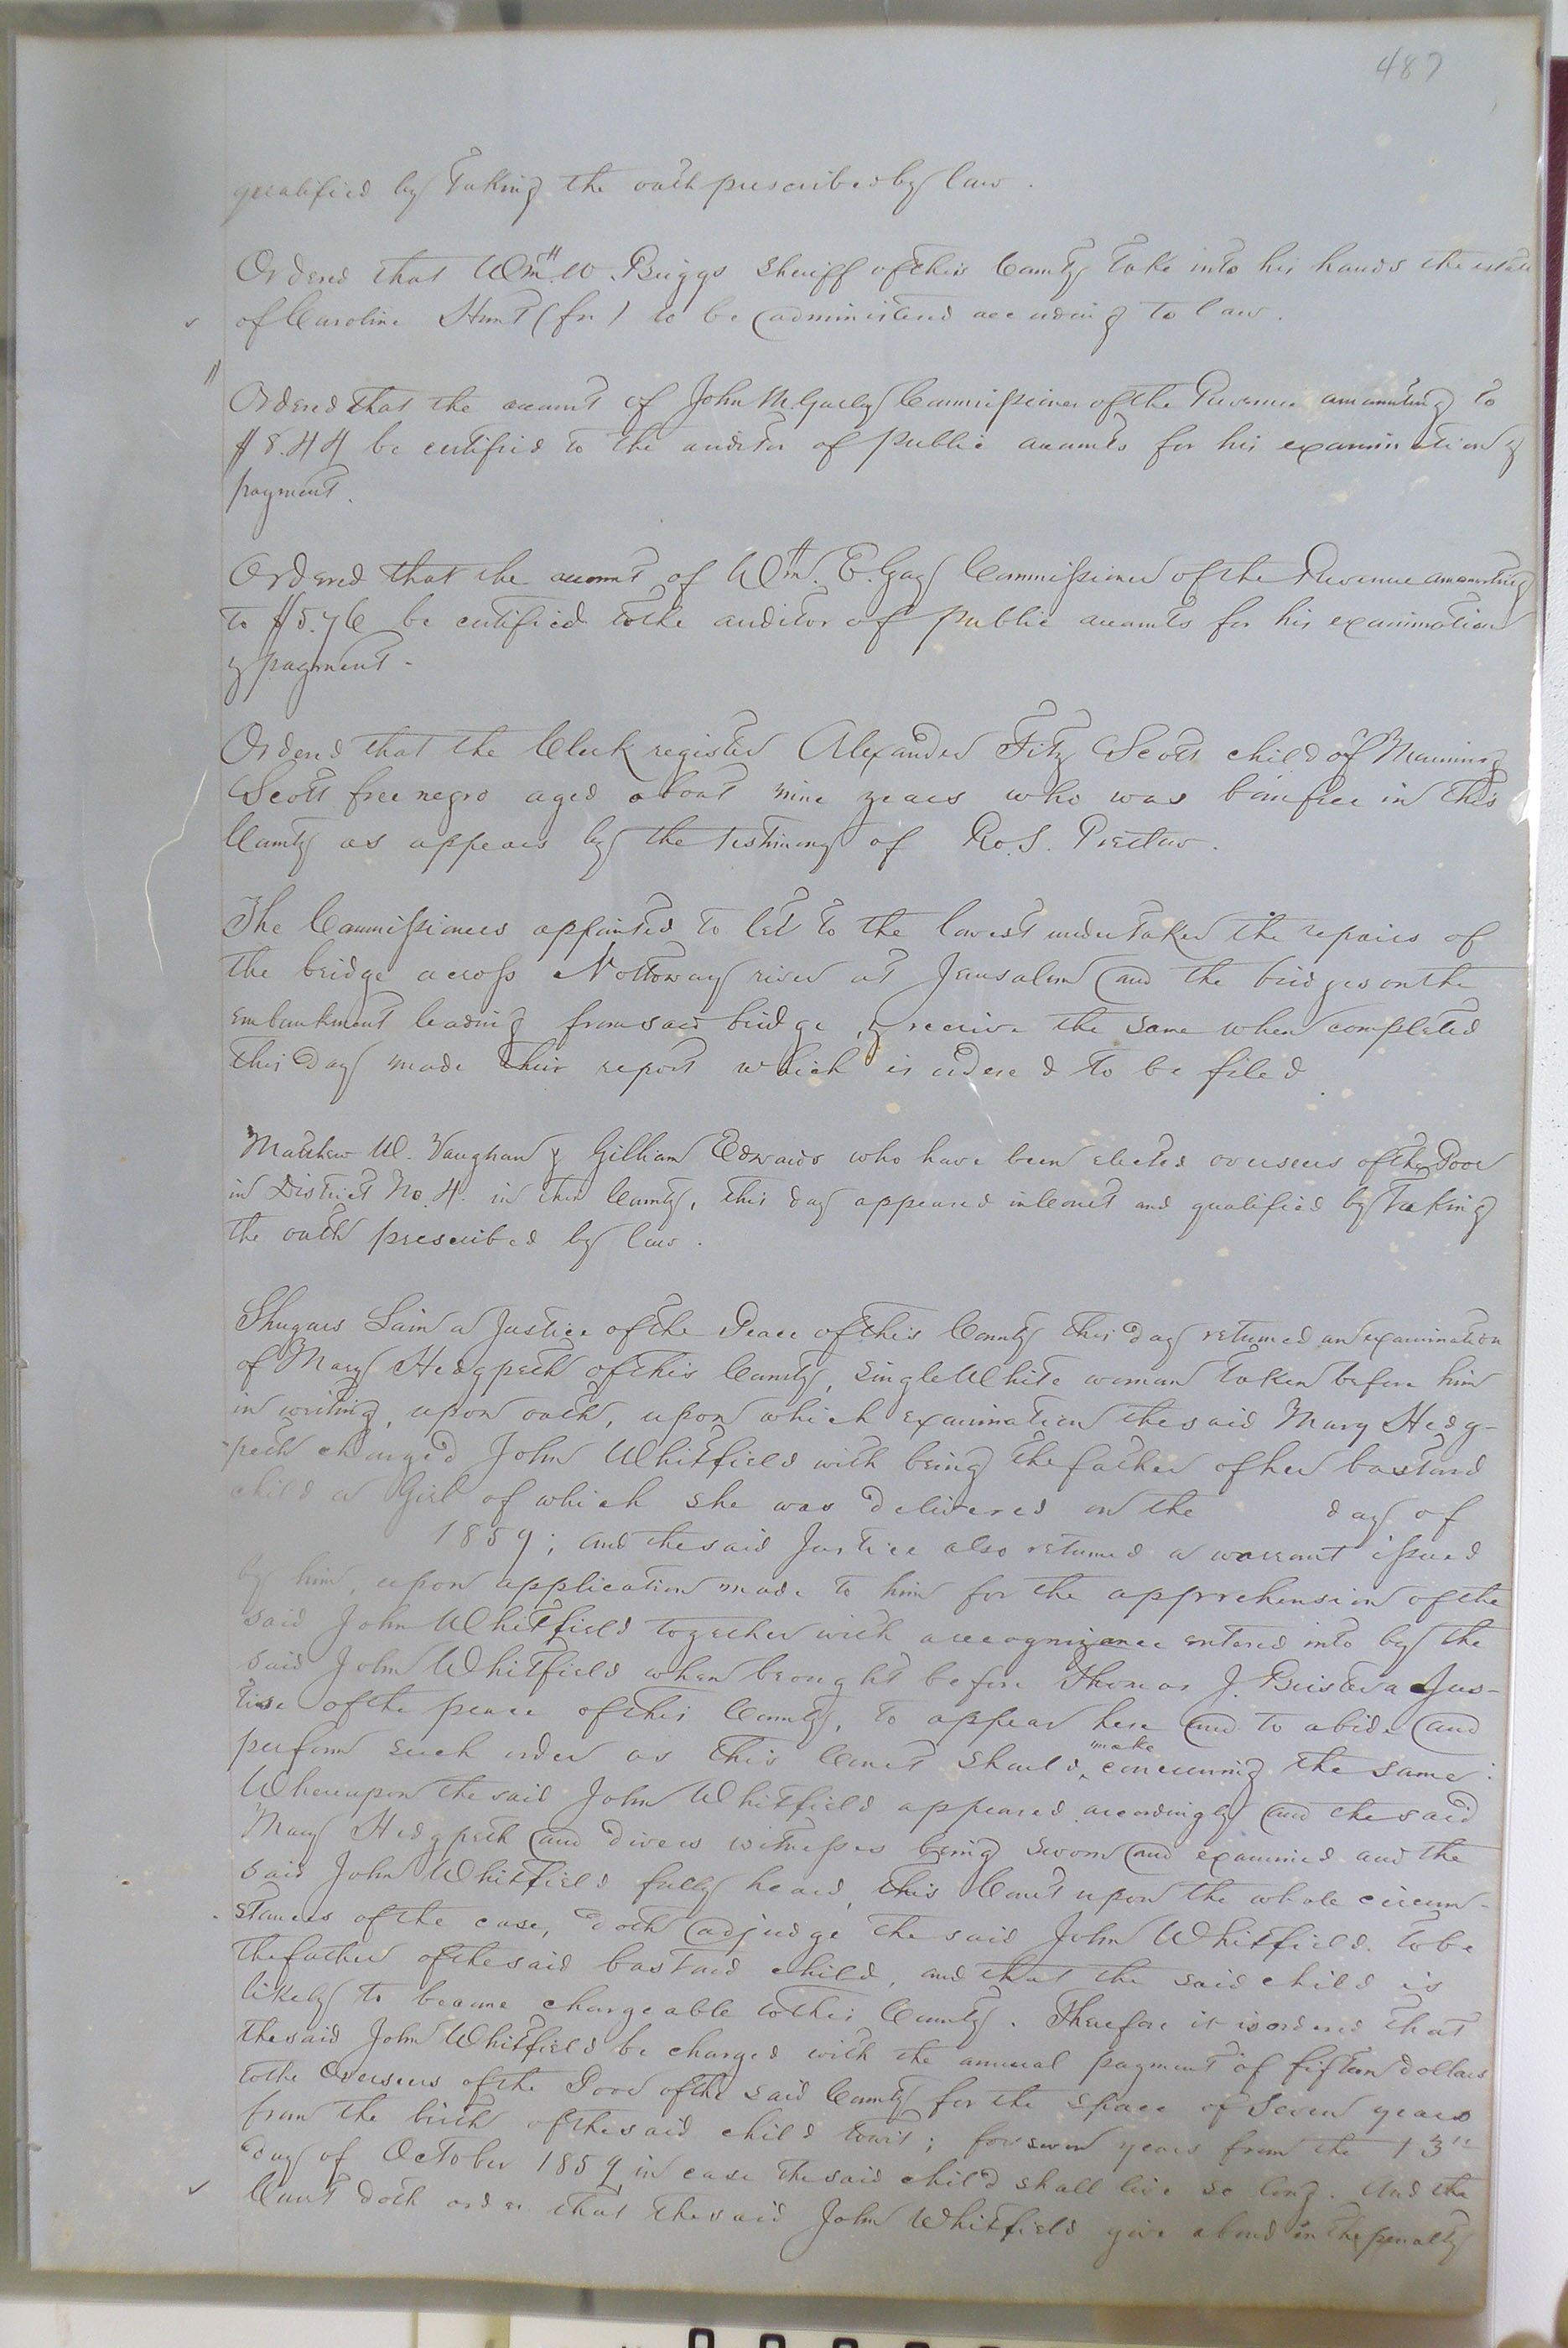 487
qualified by taking the oath prescribed by law.
Ordered that Wm. W. Briggs Sheriff of this County take into his hands the estate
of Caroline Hunt (fn) to be administered according to law.
Ordered that the account of John M. Gurley Commissioner of the Revenue amounting to
$8.44 be certified to the auditor of public accounts for his examination &
payment.
Ordered that the account of Wm. E. Gay Commissioner of the Revenue amounting
to $5.76 be certified to the auditor of public accounts for his examination
& payment.
Ordered that the Clerk register Alexander Fitz Scott child of Manning
Scott free negro aged about nine years who was born free in this
County as appears by the testimony of Ro. S. Pretlow.
The Commissioners appointed to let to the lowest undertaker the repairs of
the bridge across Nottoway river at Jerusalem and the bridges on the
embankment leading from said bridge, & receive the same when completed
this day made their report which is ordered to be filed
Matthew W. Vaughan & Gilliam Edwards who have been elected overseers of the Poor
in District No. 4. in this County, this day appeared in Court and qualified by taking
the oath prescribed by law.
Shugars Lain a Justice of the Peace of this County this day returned an examination
of Mary Hedgpeth of this County, single White woman taken before him
in writing, upon oath, upon which examination the said Mary Hedg-
-peth charged John Whitfield with being the father of her bastard
child a Girl of which she was delivered on the day of
1859; and the said Justice also returned a warrant issued
by him, upon application made to him for the apprehension of the
said John Whitfield together with a recognizance entered into by the
said John Whitfield when brought before Thomas J. Bristow a Jus-
tise of the peace of this County, to appear here and to abide and
perform such order as this Court should make concerning the same:
Whereupon the said John Whitfield appeared accordingly and the said
Mary Hedgpeth and divers witnesses being sworn and examined and the
said John Whitfield fully heard, this Court upon the whole circum-
stances of the case, doth adjudge the said John Whitfield to be
the father of the said bastard child, and that the said child is
likely to become chargeable to this County. Therefore it is ordered that
the said John Whitfield be charged with the annual payment of fifteen dollars
to the Overseers of the Poor of the said County for the space of Seven years
from the birth of the said child towit; for seven years from the 13th
day of October 1859 in case the said child shall live so long. And the
Court doth order that the said John Whitfield give a bond in the penalty